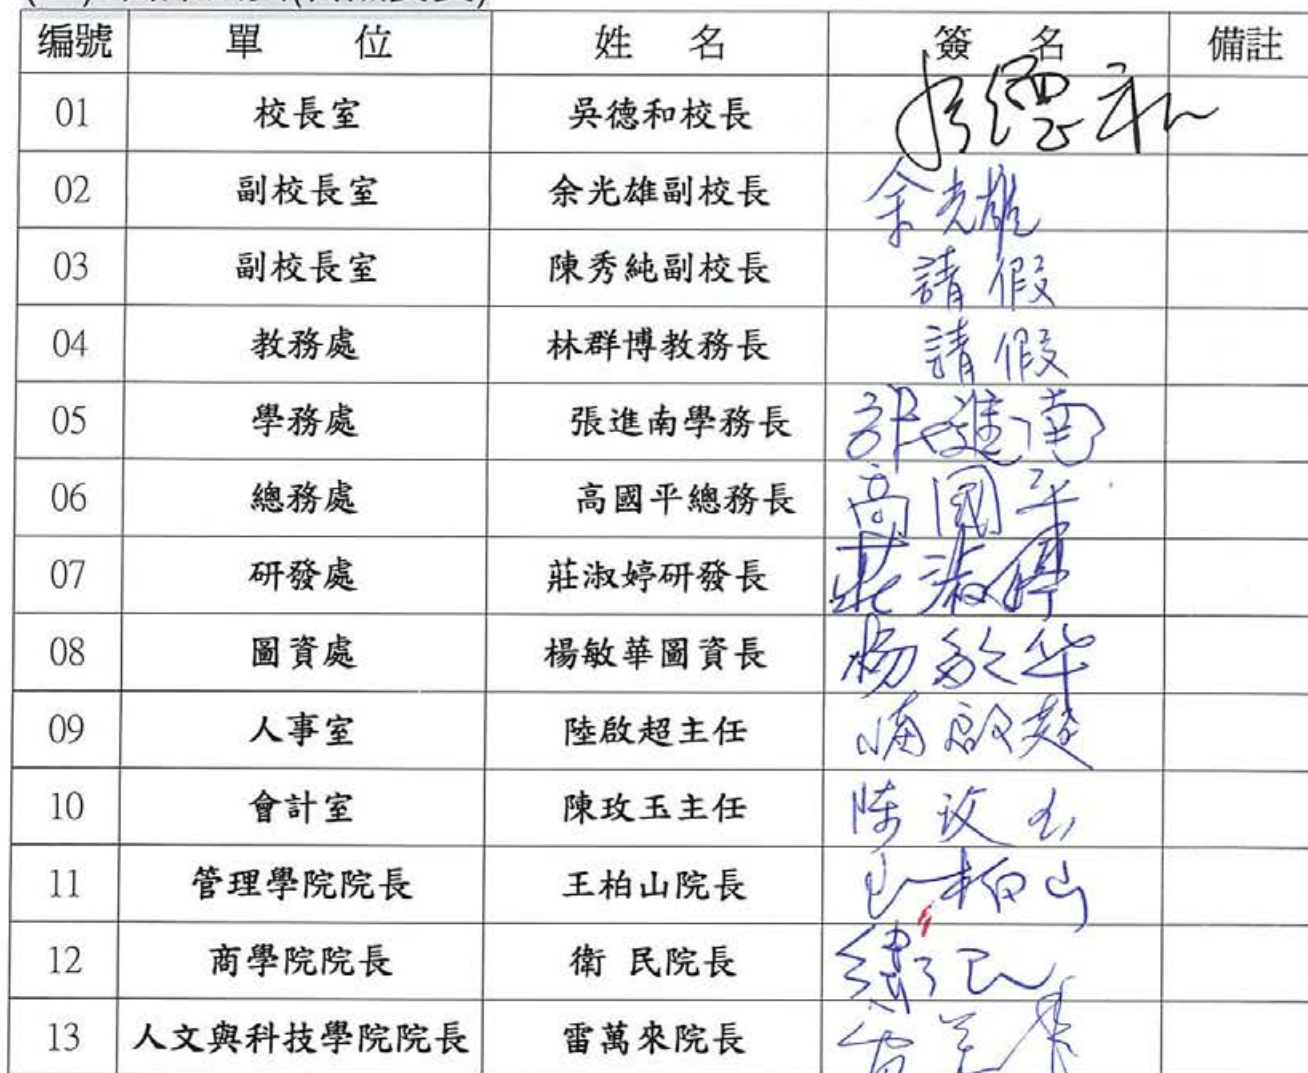 编號 單 位 姓 名 簽 名 備註
01 校長室 吳德和校長 吳德和
02 副校長室 余光雄副校長 余光雄
03 副校長室 陳秀純副校長 請假
04 教務處 林群博教務長 請假
05 學務處 張進南學務長 張進南
06 總務處 高國平總務長 高國平
07 研發處 莊淑婷研發長 莊淑婷
08 圖資處 楊敏華圖資長 楊敏华
09 人事室 陸啟超主任 陸啟超
10 會計室 陳玫玉主任 陳玫玉
11 管理學院院長 王柏山院長 王柏山
12 商學院院長 衛 民院長 衛民
13 人文與科技學院院長 雷萬來院長 雷萬來